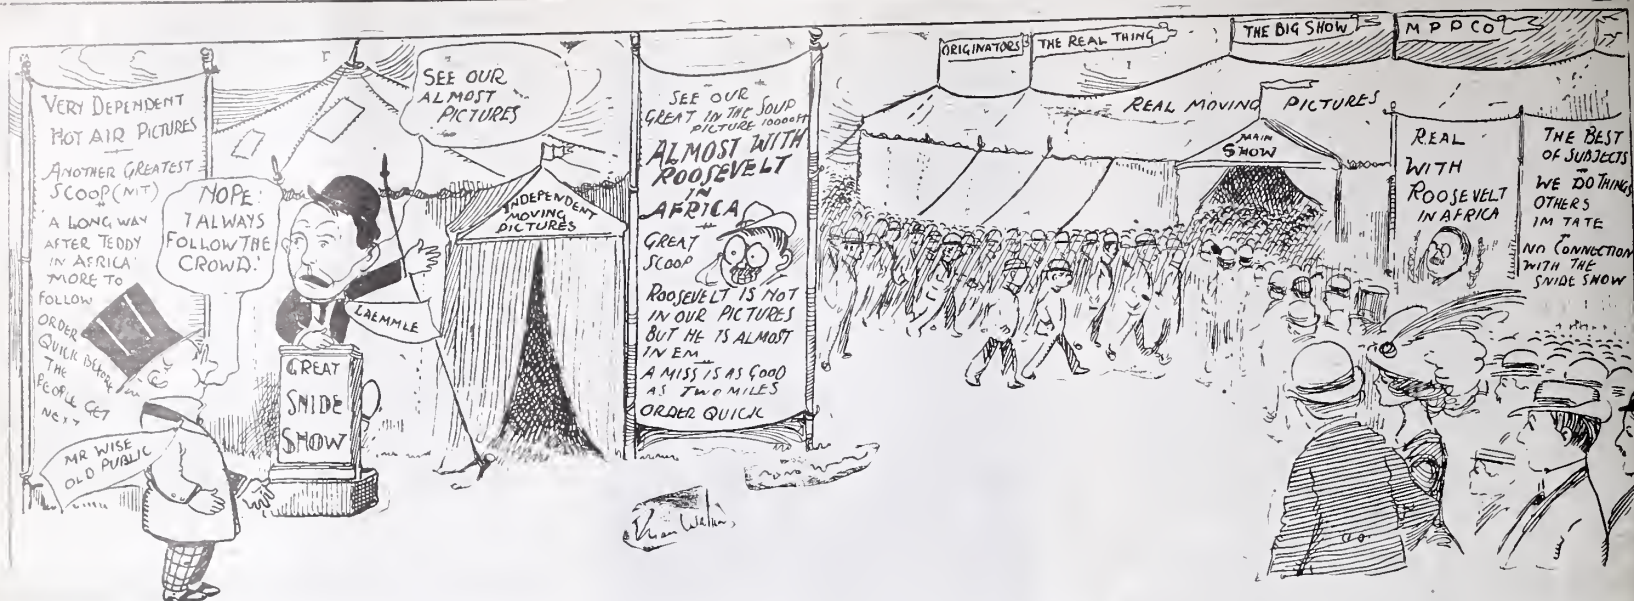 VERY DEPENDENT
HOT AIR PICTURES
ANOTHER GREATEST
SCOOP (NIT)
A LONG WAY
AFTER TEDDY
IN AFRICA
MORE TO
FOLLOW
ORDER
QUICK BEFORE
THE
PEOPLE GET
NEXT
NOPE:
I ALWAYS
FOLLOW THE
CROWD!
MR WISE
OLD PUBLIC
SEE OUR
ALMOST
PICTURES
LAEMMLE
GREAT
SNIDE
SHOW
INDEPENDENT
MOVING
PICTURES
SEE OUR
GREAT IN THE SOUP
PICTURE 10000 FT
ALMOST WITH
ROOSEVELT
IN
AFRICA
GREAT
SCOOP
ROOSEVELT IS NOT
IN OUR PICTURES
BUT HE IS ALMOST
IN EM
A MISS IS AS GOOD
AS TWO MILES
ORDER QUICK
ORIGINATORS
THE REAL THING
THE BIG SHOW
M P P CO
REAL MOVING PICTURES
MAIN
SHOW
REAL
WITH
ROOSEVELT
IN AFRICA
THE BEST
OF SUBJECTS
WE DO THINGS
OTHERS
IM TATE
NO CONNECTION
WITH THE
SNIDE SHOW